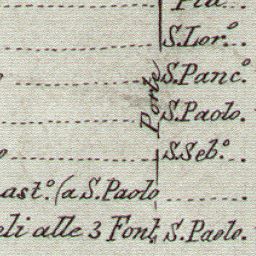 Pia
S. Lor.º
S. Panc.º
S. Paolo.
S. Seb.º
Porte
ast.º (a S. Paolo
eli alle 3 Font. S. Paolo.